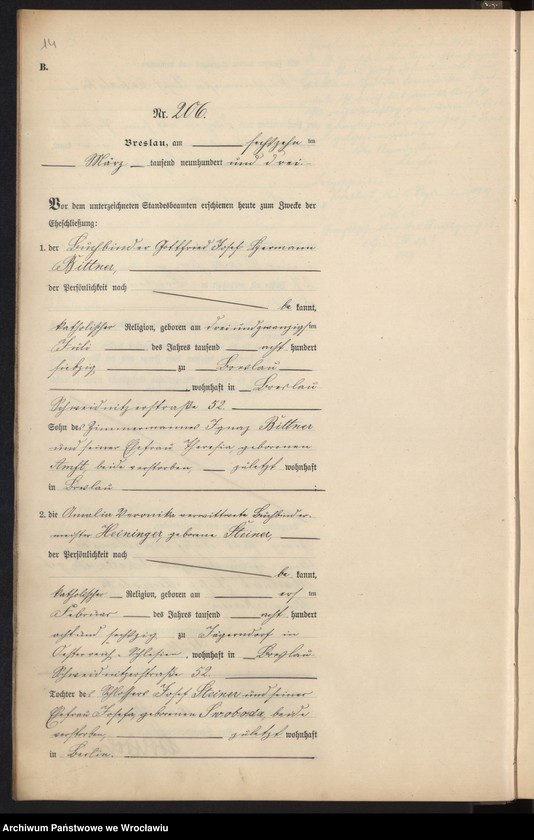 14
B.
Nr. 206.
Breslau, am sechszehn ten
März tausend neunhundert und drei
Vor dem unterzeichneten Standesbeamten erschienen heute zum Zwecke der
Eheschließung:
1. der Buchbinder Gottfried Josef Hermann
Bittner,
der Persönlichkeit nach
be kannt,
katholischer Religion, geboren am dreiundzwanzigsten
Juli des Jahres tausend acht hundert
siebzig zu Breslau
, wohnhaft in Breslau
Schweidnitzerstraße 52.
Sohn des Zimmermannes Ignaz Bittner
und seiner Ehefrau Theresia, geborenen
beide verstorben, zuletzt wohnhaft
in Breslau ;
2. die Amalia Veronika verwittwete Buchbinder-
meister Heininger, geborene Steiner,
der Persönlichkeit nach
be kannt,
katholischer Religion, geboren am ersten
Februar des Jahres tausend acht hundert
achtund sechszig zu Jägerndorf in
Oesterreich-Schlesien, wohnhaft in Breslau
Schweidnitzerstraße 52.
Tochter des Schlossers Josef Steiner und seiner
Ehefrau Josefa, geborenen Swoboda, beide
verstorben, zuletzt wohnhaft
in Berlin.
Archiwum Państwowe we Wrocławiu